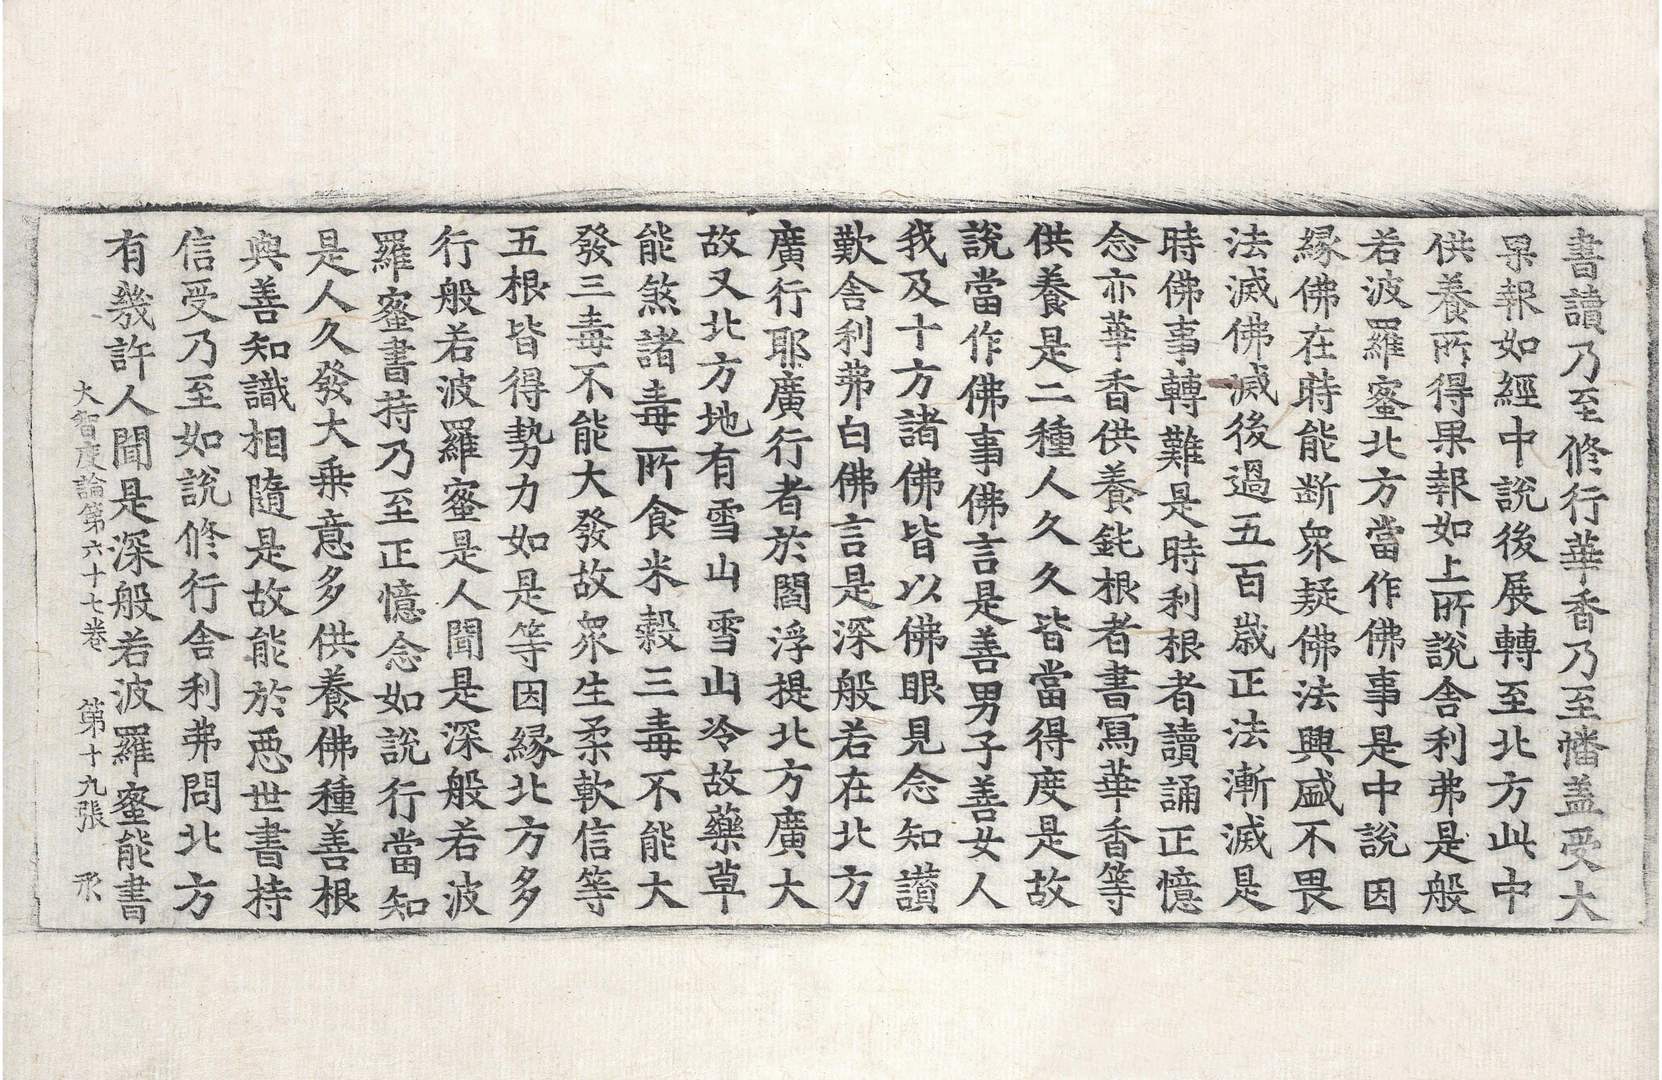 書讀乃至修行華香乃至幡盖受大
果報如經中說後展轉至北方此中
供養所得果報如上所說舍利弗是般
若波羅蜜北方當作佛事是中說因
緣佛在時能断衆疑佛法興盛不畏
法滅佛滅後過五百歲正法漸滅是
時佛事轉難是時利根者讀誦正憶
念亦華香供養鈍根者書寫華香等
供養是二種人久久皆當得度是故
說當作佛事佛言是善男子善女人
我及十方諸佛皆以佛眼見念知讃
歎舍利弗白佛言是深般若在北方
廣行耶廣行者於閻浮提北方廣大
故又北方地有雪山雪山冷故藥草
能煞諸毒所食米穀三毒不能大
發三毒不能大發故衆生柔軟信等
五根皆得勢力如是等因緣北方多
行般若波羅蜜是人聞是深般若波
羅蜜書持乃至正憶念如說行當知
是人久發大乗意多供養佛種善根
與善知識相隨是故能於惡世書持
信受乃至如說修行舍利弗問北方
有幾許人聞是深般若波羅蜜能書
大智度論第六十七卷 第十九張